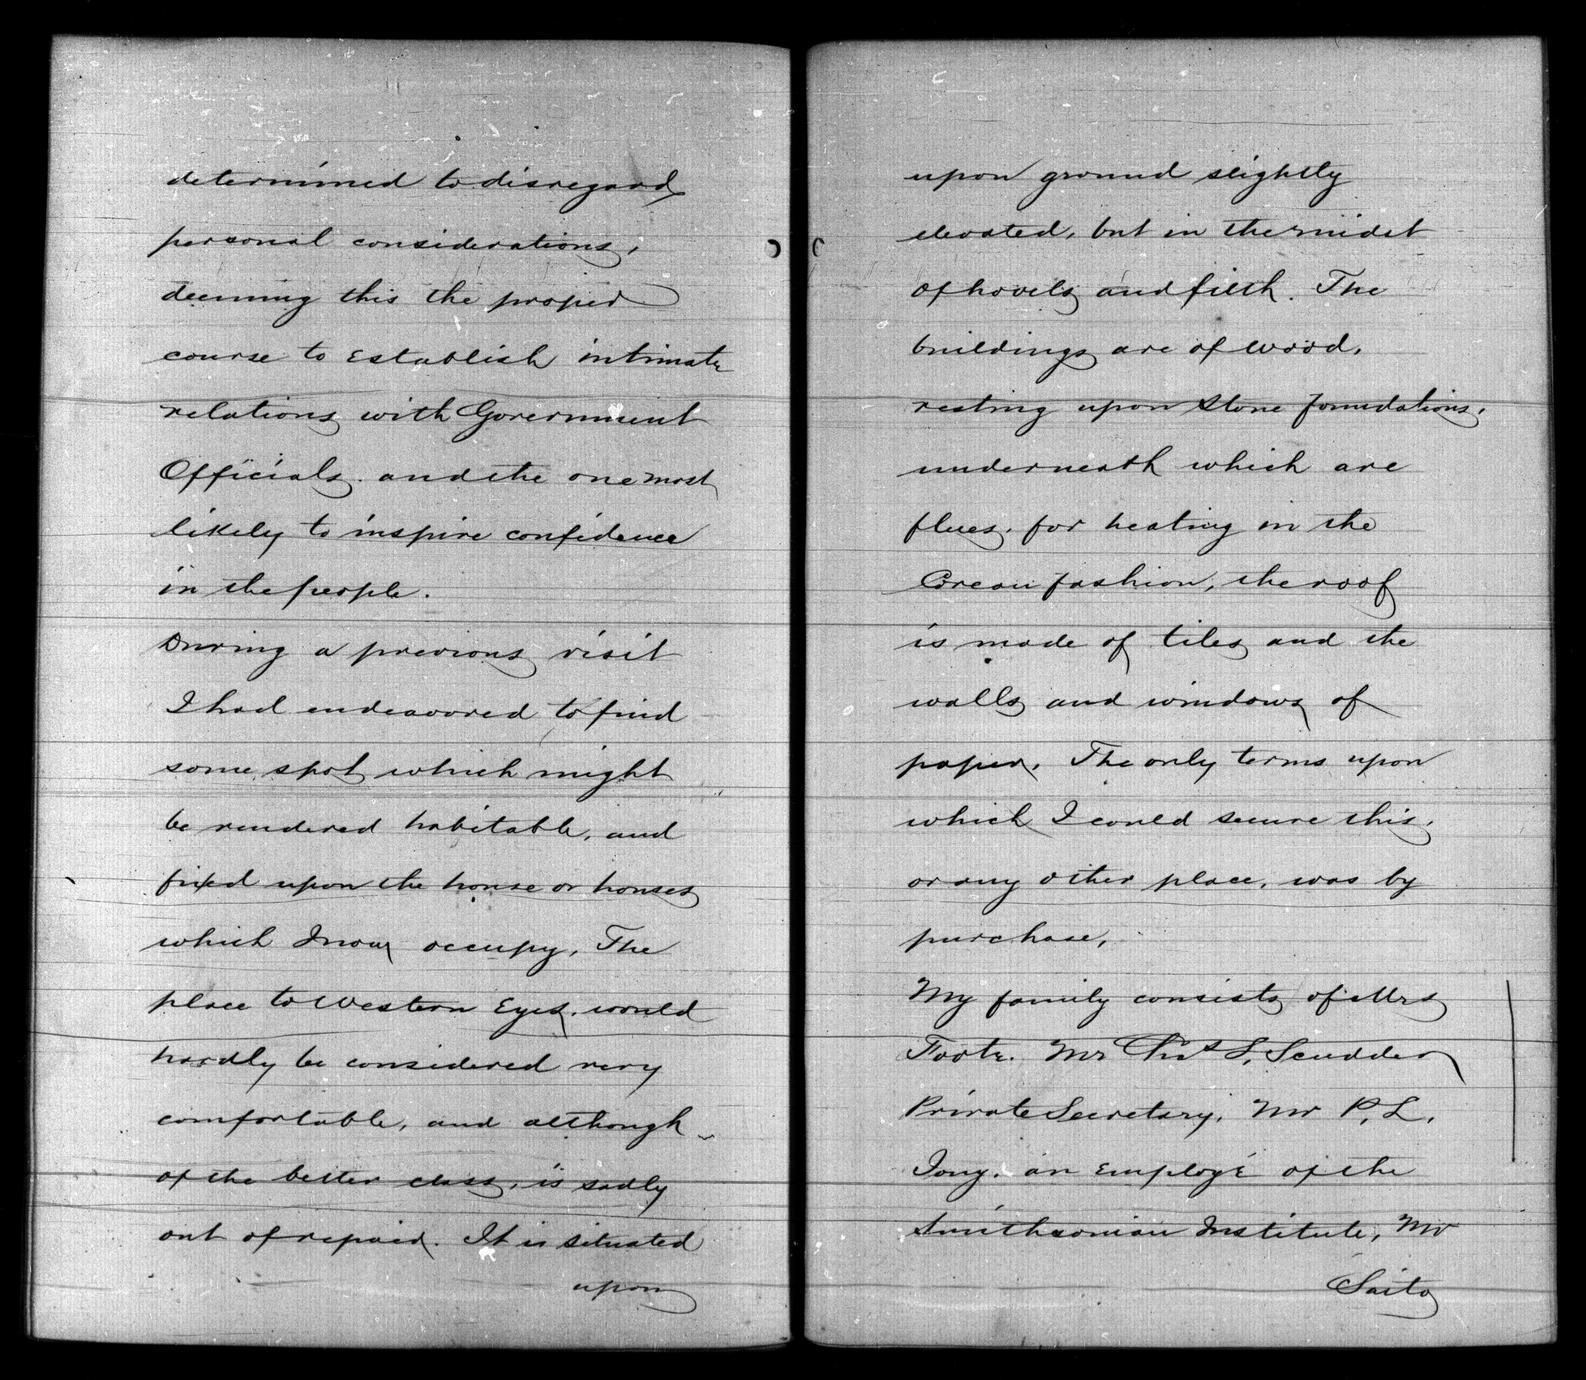 determined to disregard
personal considerations,
deeming this the proper
course to Establish intimate
relations with Government
Officials. and the one most
likely to inspire confidence
in the people.
During a previous visit
I had endeavored to find
some spot which might
be rendered habitable, and
fixed upon the house or houses
which I now occupy. The
place to Western Eyes, would
hardly be considered very
comfortable, and although
of the better class, is sadly
out of repair. It is situated
upon
upon ground slightly
elevated, but in the midst
of hovels and filth. The
buildings are of wood,
resting upon stone foundations,
underneath which are
flues, for heating in the
Corean fashion, the roof
is made of tiles and the
walls and windows of
paper. The only terms upon
which I could secure this,
or any other place, was by
purchase,
My family consists of Mrs
Foote. Mr Chas L, Scudder
Private Secretary, Mr P, L,
Jouy. an Employé of the
Smithsonian Institute, Mr
Saito